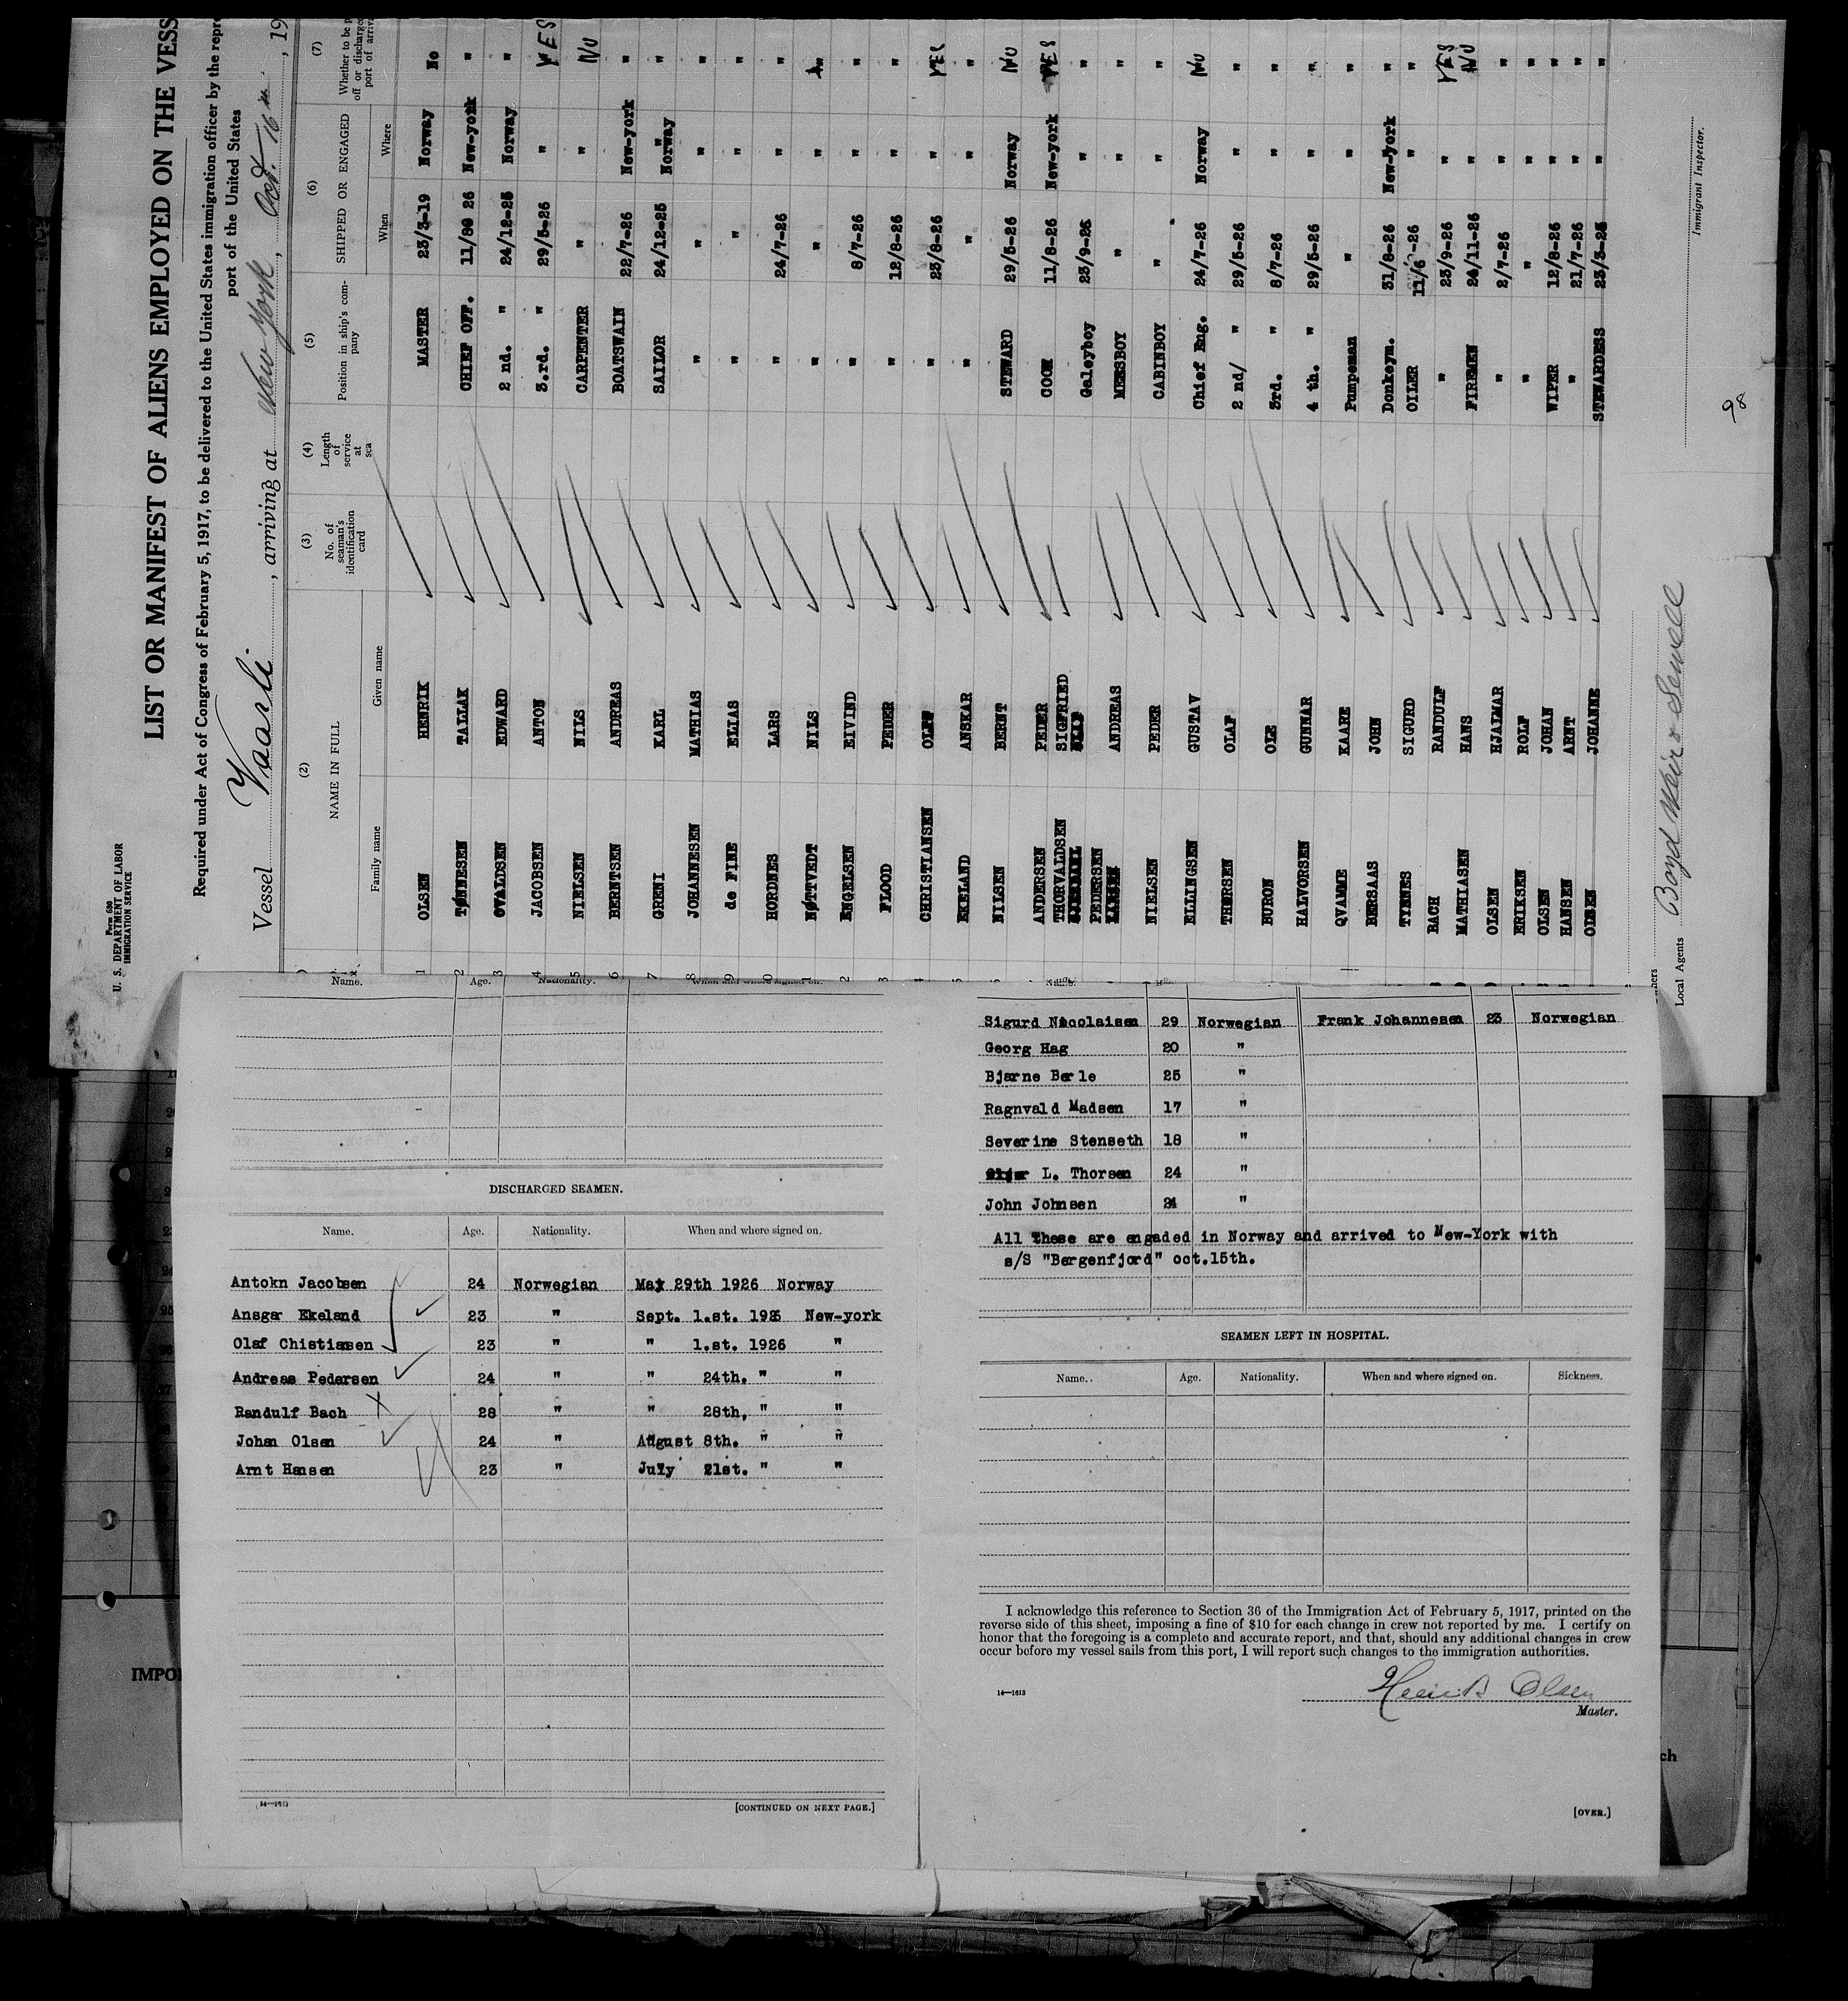 Form 680
U. S. DEPARTMENT OF LABOR
IMMIGRATION SERVICE
LIST OR MANIFEST OF ALIENS EMPLOYED ON THE VESS
Required under Act of Congress of February 5, 1917, to be delivered to the United States immigration officer by the repre
port of the United States
Vessel Vaarli, arriving at New York, Oct. 16th, 19
(2) (3) (4) (5) (6) (7)
NAME IN FULL No. of seaman's identification card Length of service at sea Position in ship's company SHIPPED OR ENGAGED Whether to be p off or discharged port of arriv
Family name Given name When Where
1 OLSEN HENRIK MASTER 23/3-19 Norway No
2 TØNNESEN TALLAK CHIEF OFF. 11/ 26 New-york "
3 OVALDSEN EDWARD 2 nd. " 24/12-25 Norway "
4 JACOBSEN ANTON 3.rd. " 29/5-26 " YES
5 NIELSEN NILS CARPENTER " " NO
6 BERNTSEN ANDREAS BOATSWAIN 22/7-26 New-york "
7 GRENI KARL SAILOR 24/12-25 Norway "
8 JOHANNESEN MATHIAS " " " "
9 de FINE ELIAS " " " "
0 HORDNES LARS " 24/7-26 " "
1 NØTTVEDT NILS " " " "
2 ENGELSEN EIVIND " 8/7-26 " "
3 FLOOD PEDER " 12/8-26 " "
4 CHRISTIANSEN " 23/8-26 " YES
5 EKELAND ANSKAR " " " "
NILSEN BERNT STEWARD 29/5-26 Norway NO
ANDERSEN PEDER COOK 11/8-26 New-york YES
THORVALDSEN SIGFRIED Galeyboy 23/9-26 " "
PEDERSEN ANDREAS MESSBOY " " "
NIELSEN PEDER CABINBOY " " "
ELLINGSEN GUSTAV Chief Eng. 24/7-26 Norway NO
THORSEN OLAF 2 nd/ " 29/5-26 " "
BURON OLE 3rd. " 8/7-26 " "
HALVORSEN GUNNAR 4 th. " 29/5-26 " "
QVAMME KAARE Pumpeman " " "
BERSAAS JOHN Donkeym. 31/8-26 New-york "
TYNNES SIGURD OILER 11/6 -26 " "
BACH RANDULF " 23/9-26 " YES
MATHIASEN HANS FIREMEN 24/11-25 " NO
OLSEN HJALMAR " 2/7-26 " "
ERIKSEN ROLF " " " "
OLSEN JOHAN WIPER 12/8-26 " "
HANSEN ARNT " 21/7-26 " "
OLSEN JOHANNE STEWARDESS 23/3-25 " "
ners
Local Agents Boyd Weir & Sewell
Immigrant Inspector.
98
Name. Age. Nationality. When and where signed on.
DISCHARGED SEAMEN.
Name. Age. Nationality. When and where signed on.
Antokn Jacobsen 24 Norwegian May 29th 1926 Norway
Ansgar Ekeland 23 " Sept. 1.st. 1926 New-york
Olaf Chistiansen 23 " " 1.st. 1926 "
Andreas Pedersen 24 " " 24th. " "
Randulf Bach 28 " " 28th, " "
Johan Olsen 24 " August 8th. " "
Arnt Hansen 23 " July 21st. " "
[CONTINUED ON NEXT PAGE.]
Sigurd Nicolaisen 29 Norwegian Frank Johannesen 23 Norwegian
Georg Hag 20 "
Bjarne Berle 25 "
Ragnvald Madsen 17 "
Severine Stenseth 18 "
L. Thorsen 24 "
John Johnsen 24 "
All These are engaded in Norway and arrived to New-York with
s/S "Bergenfjord" oct.15th.
SEAMEN LEFT IN HOSPITAL.
Name. Age. Nationality. When and where signed on. Sickness.
I acknowledge this reference to Section 36 of the Immigration Act of February 5, 1917, printed on the
reverse side of this sheet, imposing a fine of $10 for each change in crew not reported by me. I certify on
honor that the foregoing is a complete and accurate report, and that, should any additional changes in crew
occur before my vessel sails from this port, I will report such changes to the immigration authorities.
14—1613
Henrik Olsen
Master.
[OVER.]
IMPO
ch